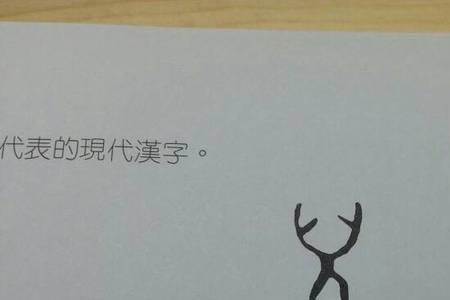 代表的現代漢字。